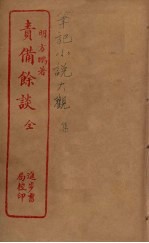 明方鵬著
責備餘談 全
進步書
局校印
筆記小說大觀